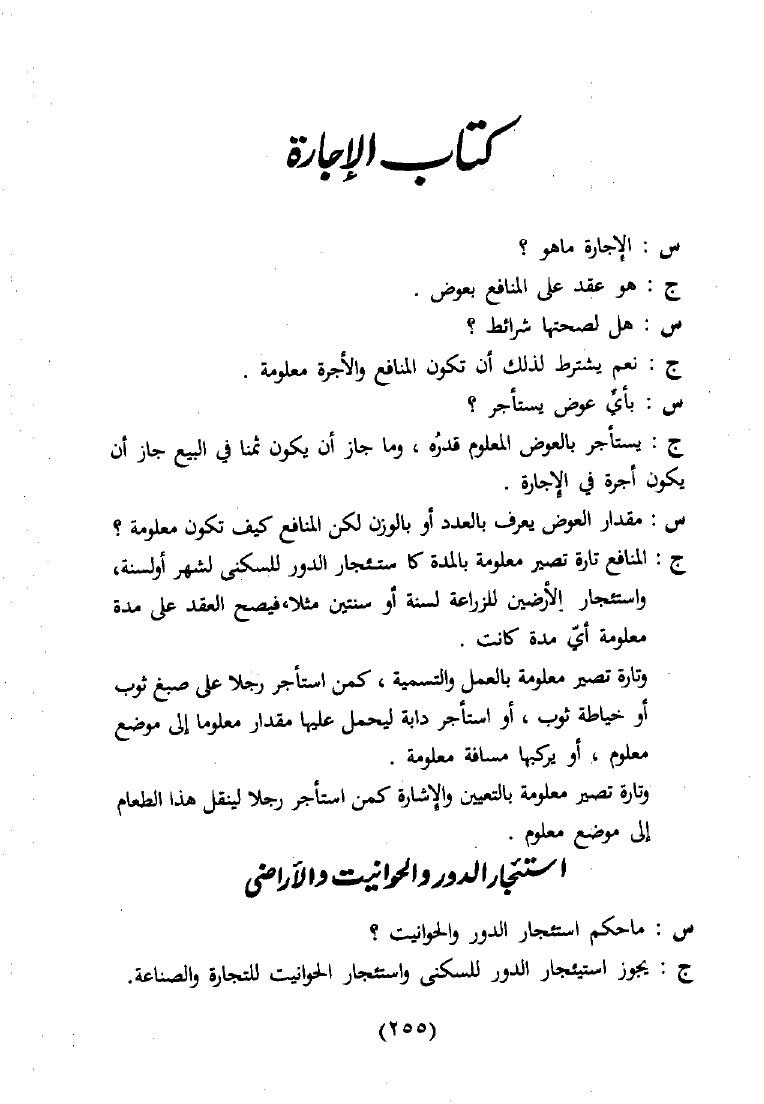 كتاب الإجارة
س : الإجارة ماهو ؟
ج : هو عقد على المنافع بعوض .
س : هل لصحتها شرائط ؟
ج : نعم يشترط لذلك أن تكون المنافع والأجرة معلومة .
س : بأيِّ عوض يستأجر ؟
ج : يستأجر بالعوض المعلوم قدرُه ، وما جاز أن يكون ثمنا في البيع جاز أن
يكون أجرة في الإجارة .
س : مقدار العوض يعرف بالعدد أو بالوزن لكن المنافع كيف تكون معلومة ؟
ج : المنافع تارة تصير معلومة بالمدة كا ستئجار الدور للسكنى لشهر أولسنة،
واستئجار إلأرضين للزراعة لسنة أو سنتين مثلا،فيصح العقد على مدة
معلومة أيّ مدة كانت .
وتارة تصير معلومة بالعمل والتسمية ، كمن استأجر رجلا على صبغ ثوب
أو خياطة ثوب ، أو استأجر دابة ليحمل عليها مقدار معلوما إلى موضع
معلوم ، أو يركبها مسافة معلومة .
وتارة تصير معلومة بالتعيين والإشارة كمن استأجر رجلا لينقل هذا الطعام
إلى موضع معلوم .
استئجار الدور والحوانيت والأراضى
س : ماحكم استئجار الدور والحوانيت ؟
ج : يجوز استيئجار الدور للسكنى واستئجار الحوانيت للتجارة والصناعة.
(٢٥٥)